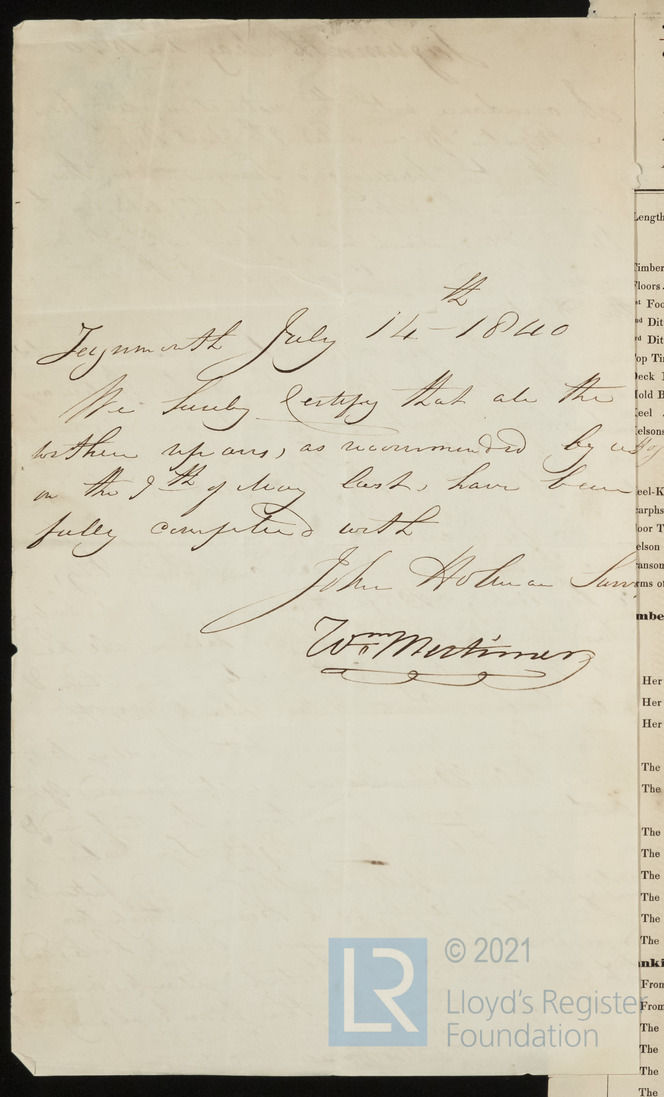 Teignmouth July 14th 1840
We hereby Certify that all the
further repairs, as recommended by us
on the 9th of May last, have been
fully complied with
John Holman
Wm Mortimer
Length
Timber
Floors
1st Foo
2nd Dit
3rd Dit
Top Ti
Deck
Hold B
Keel
Kelsons
Keel-K
Scarphs
Floor T
Kelson
Transom
Arms of
mbe
Her
Her
Her
The
The
The
The
The
The
The
The
anki
From
From
The
The
The
The
LR
© 2021
Lloyd's Register
Foundation